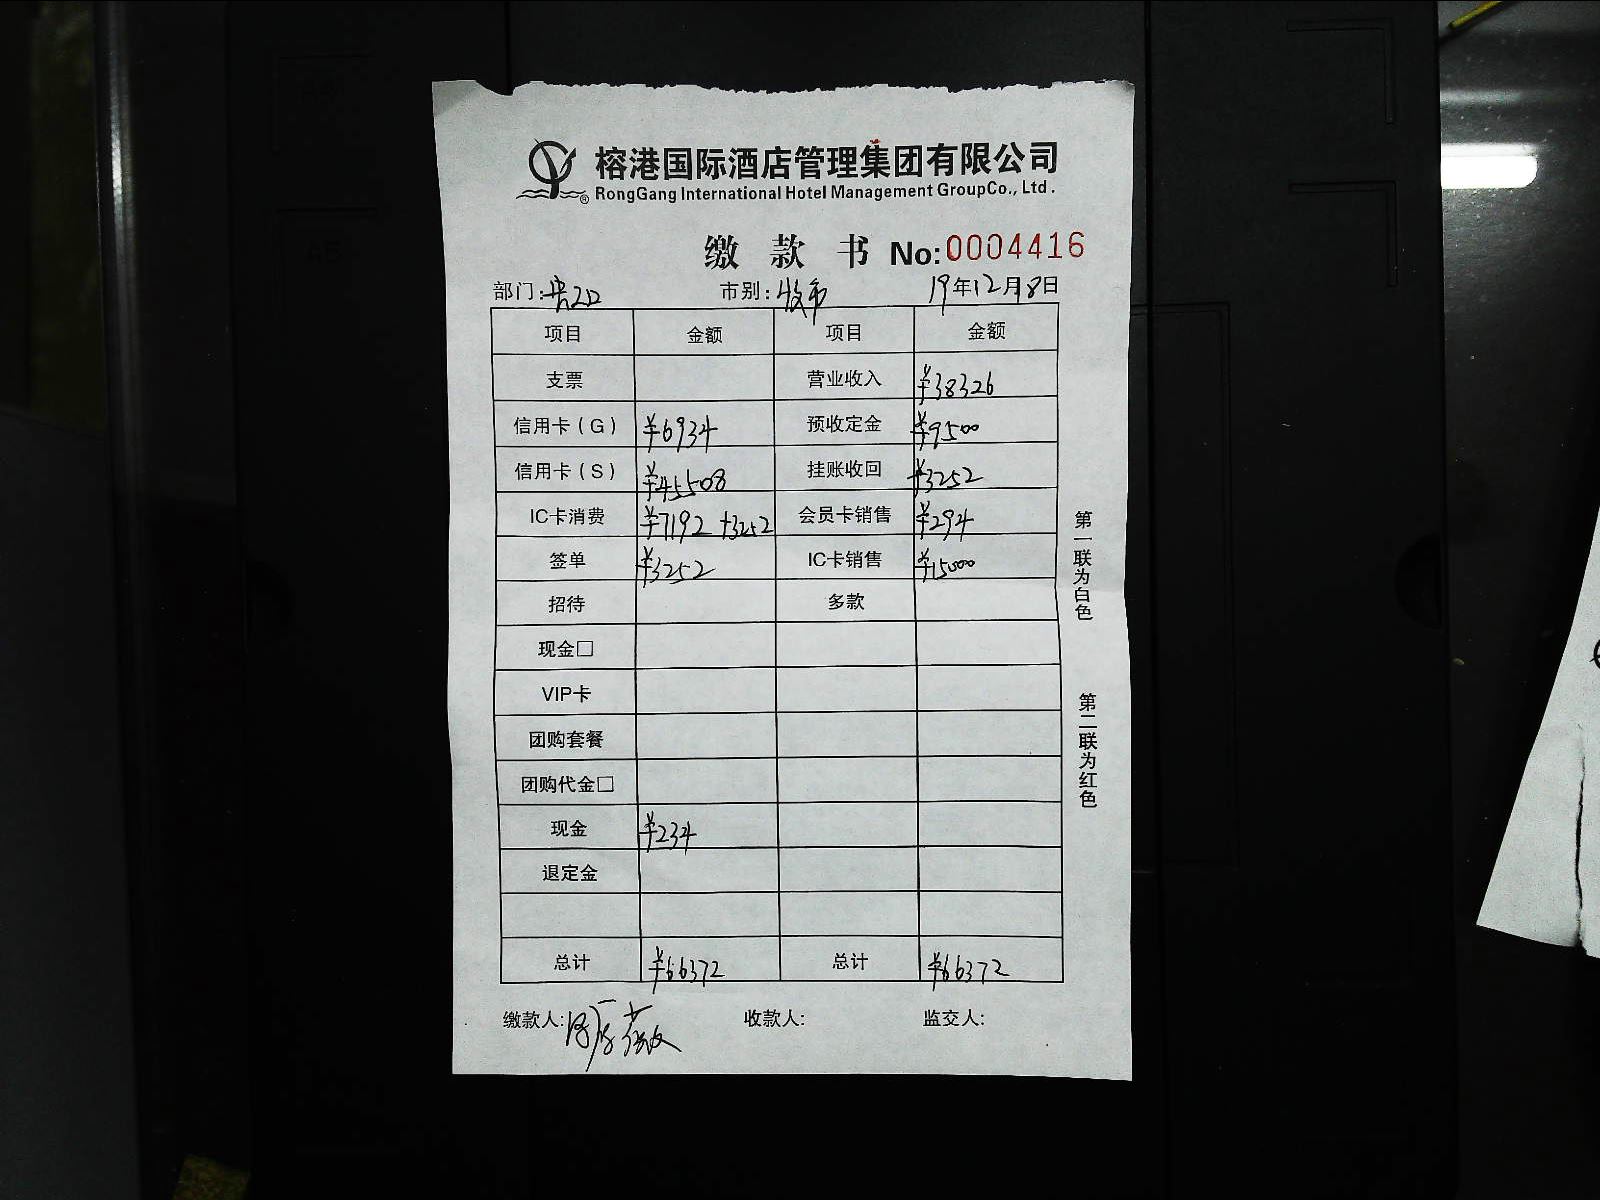 榕港国际酒店管理集团有限公司
RongGang International Hotel Management GroupCo., Ltd.
缴款书 No:0004416
部门: 市别: 收市 19年12月8日
项目 金额 项目 金额
支票 营业收入 ¥38326
信用卡(G) ¥6934 预收定金 ¥9500
信用卡(S) ¥45508 挂账收回 ¥3252
IC卡消费 ¥7192 +3252 会员卡销售 ¥294
签单 ¥3252 IC卡销售 ¥15000
招待 多款
现金□
VIP卡
团购套餐
团购代金□
现金 ¥234
退定金
总计 ¥66372 总计 ¥66372
缴款人: 收款人: 监交人:
第一联为白色
第二联为红色